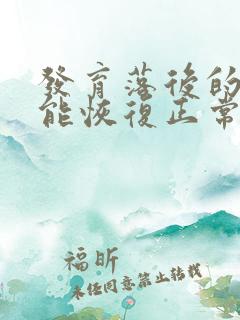 發育落後的
能恢復正常
福昕
未任同意禁止转载